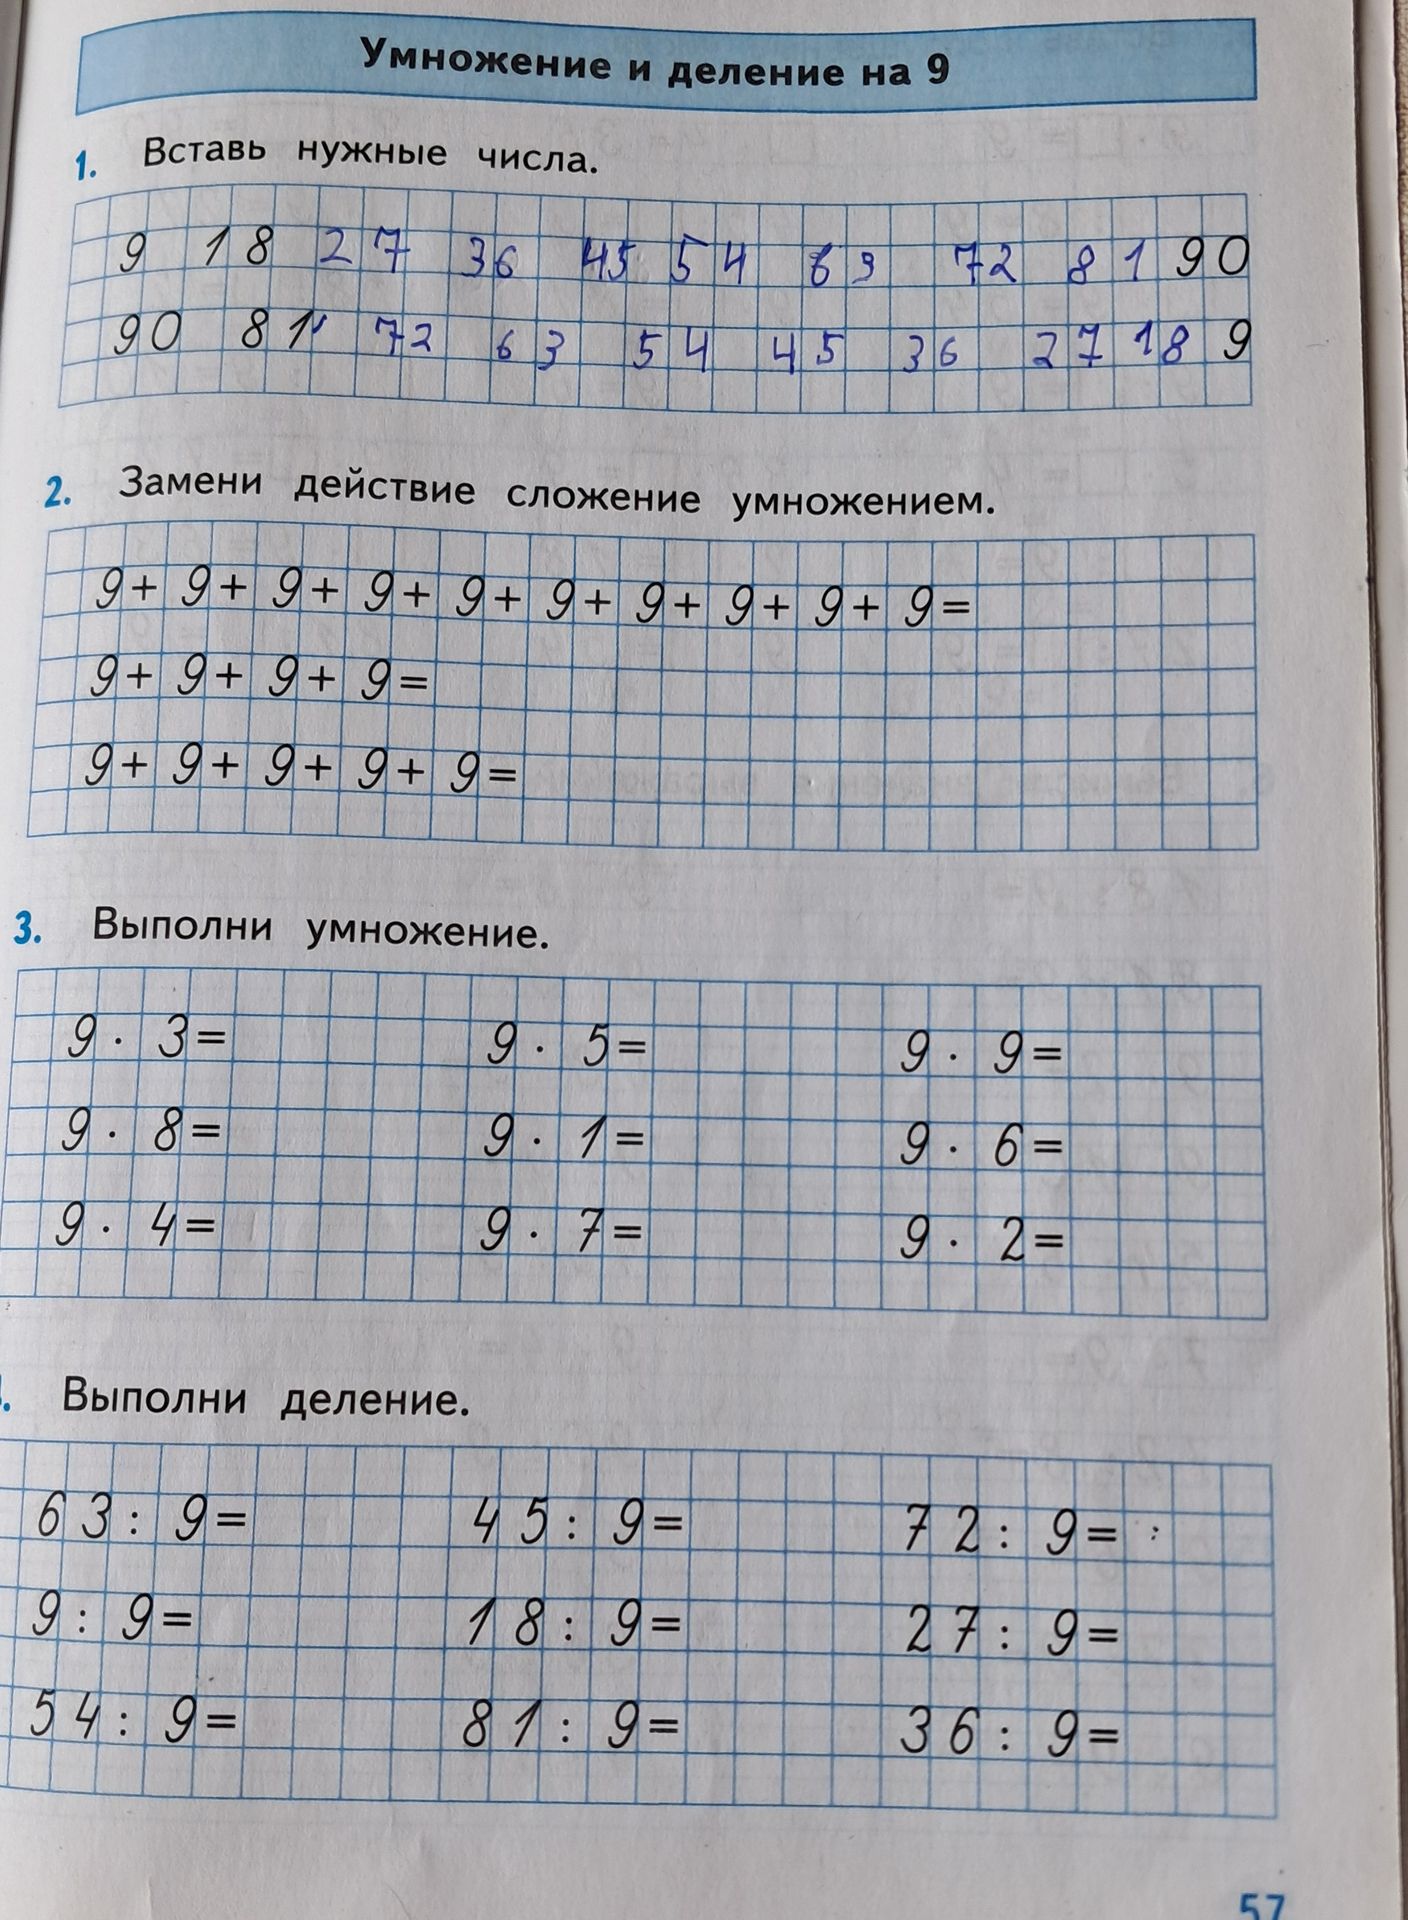 Умножение и деление на 9
1. Вставь нужные числа.
9 18 27 36 45 54 69 72 81 90
90 81 72 63 54 45 36 27 18 9
2. Замени действие сложение умножением.
9+ 9+ 9+ 9+ 9+ 9+ 9+ 9+ 9+ 9=
9+ 9+ 9+ 9=
9+ 9+ 9+ 9+ 9=
3. Выполни умножение.
9 · 3= 9 · 5= 9 · 9=
9 · 8= 9 · 1= 9 · 6=
9 · 4= 9 · 7= 9 · 2=
. Выполни деление.
63: 9= 45: 9= 72: 9= :
9: 9= 18: 9= 27: 9=
54: 9= 81: 9= 36: 9=
57